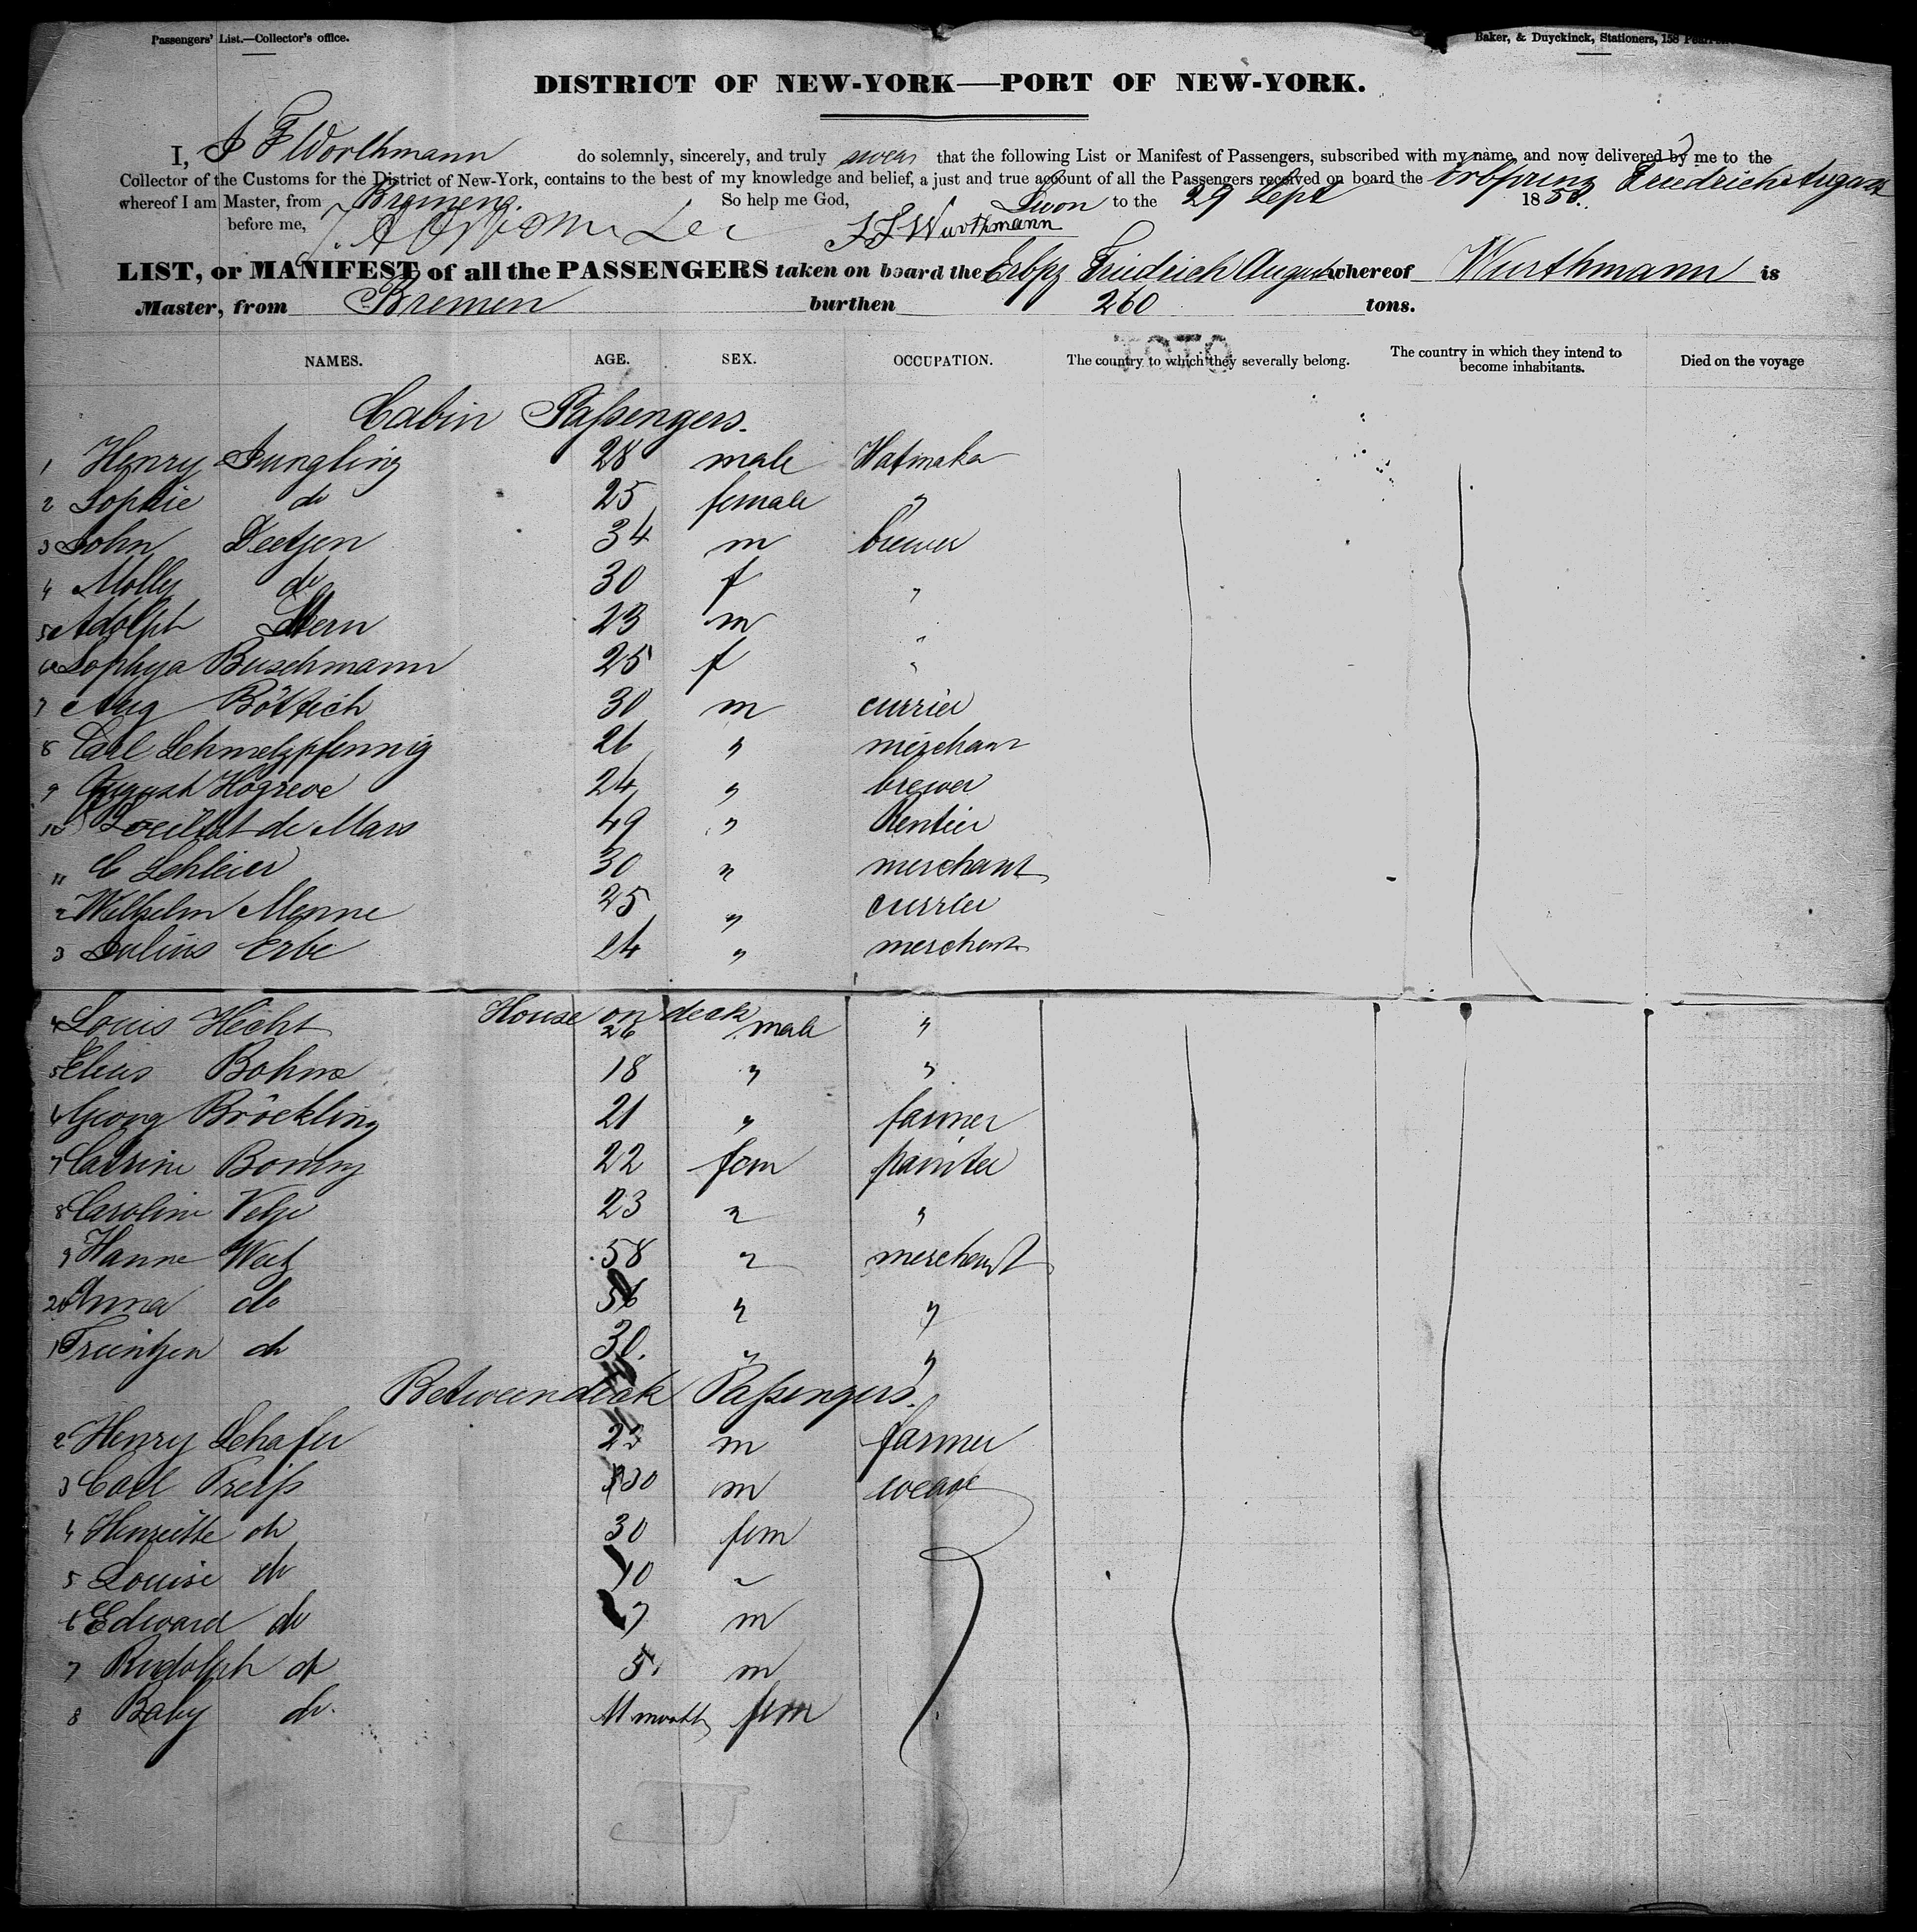 Passengers' List.—Collector's office.
Baker, & Duyckinck, Stationers, 158 Pearl
DISTRICT OF NEW-YORK—PORT OF NEW-YORK.
I, J F Worthmann do solemnly, sincerely, and truly swear that the following List or Manifest of Passengers, subscribed with my name, and now delivered by me to the
Collector of the Customs for the District of New-York, contains to the best of my knowledge and belief, a just and true account of all the Passengers received on board the Erbprinz Friedrich August
whereof I am Master, from Bremen. So help me God,
Sworn to the 29 Sept 1853.
before me, J F Wurthmann
LIST, or MANIFEST, of all the PASSENGERS taken on board the Erbpz Friedrich August whereof Wurthmann is
Master, from Bremen burthen 260 tons.
NAMES. AGE. SEX. OCCUPATION. The country to which they severally belong. The country in which they intend to become inhabitants. Died on the voyage
Cabin Passengers.
1 Henry Jungling 28 male Hatmaker
2 Sophie do 25 female "
3 John Deetjen 34 m brewer
4 Molly do 30 f "
5 Adolph Stern 23 m "
6 Sophya Buschmann 25 f "
7 Aug Böttich 30 m currier
8 Carl Schmelzpfennig 26 " merchant
9 August Hogreve 24 " brewer
10 de Mars 49 " Rentier
11 C Schleier 30 " merchant
2 Wilhelm Menne 25 " currier
3 Julius Erbe 24 " merchant
House on deck
4 Louis Hecht 26 male "
5 Elias Bohms 18 " "
6 Georg Bröckling 21 " farmer
7 Catrine 22 fem painter
8 Caroline 23 " "
9 Hanne 58 " merchant
20 Anna do 56 " "
1 Trientjen do 30. " "
Betweendeck Passengers.
2 Henry Schafer 23 m farmer
3 Carl Preiss 30 m weaver
4 Henriette do 30 fem
5 Louise do 10 "
6 Edward do 7 m
7 Rudolph do 5. m
8 Baby do. 11 months fem